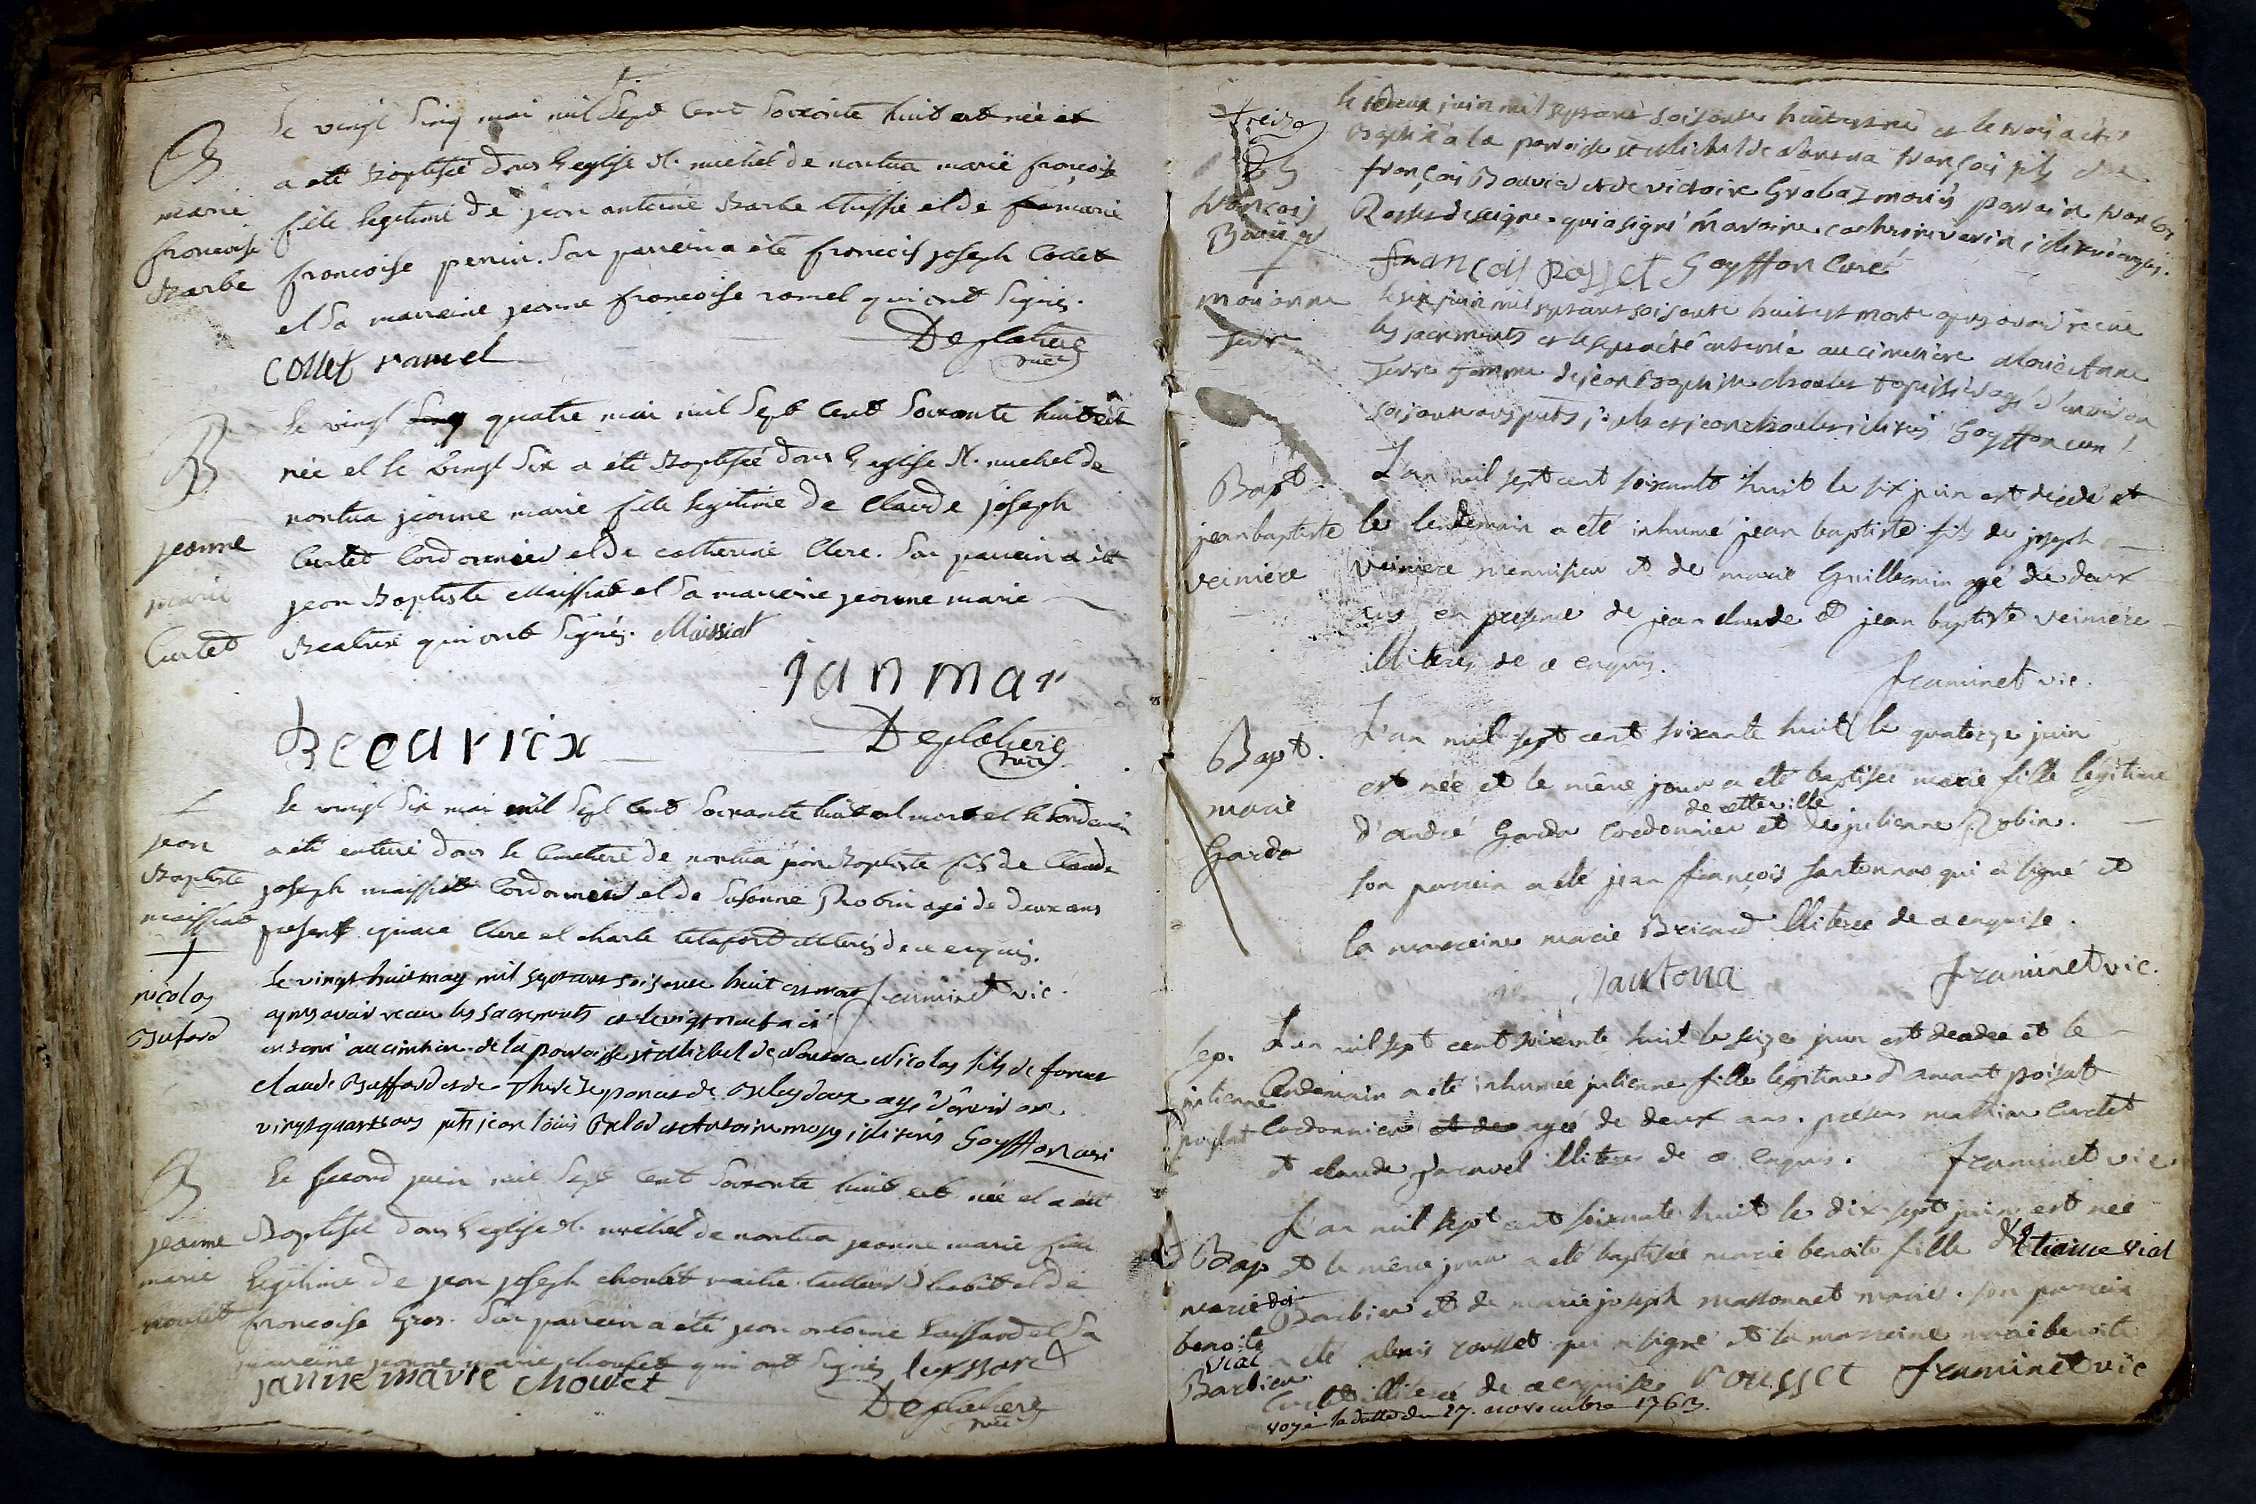 B
marie
francoise
Barbe
Le vingt Cinq mai mil Sept Cent Soixante huit est née et
a été Baptisée dans L'eglise St. michel de nantua marie francoise
fille legitime de jean antoine Barbe et de marie
francoise perrin. Son parrein a été francois joseph Collet
et Sa marreine jeanne francoise ramel qui ont Signés.
Collet ramel
Deglatiere vic
B
jeanne
marie
Curtet
Le vingt quatre mai mil Sept Cent Soixante huit est
née et le vingt Six a été Baptisée dans L'eglise St. michel de
nantua jeanne marie fille legitime de Claude joseph
Curtet Cordonnier et de catherine Clerc. Son parrein a été
jean Baptiste Maissiat et Sa mareine jeanne marie
Beatrix qui ont Signés. Maissiat
Jan mar
Beeatrix
Deglatiere vic
jean
Baptiste
maissiat
Le vingt Six mai mil Sept Cent Soixante huit est mort et le lendemain
a été enterré dans le Cimetiere de nantua jean Baptiste fils de Claude
joseph maissiat Cordonnier et de Susanne Robin agé de deux ans
present ignace Clerc et charle illiterés de ce enquis.
framinet vic.
nicolas
Bufard
Le vingt huit may mil sept cent soisante huit est mort
apres avoir receu les sacrements et le vingt neuf a eté
enterré au cimitiere de la paroisse st Michel de Nantua Nicolas fils de
claude Buffard et de Therese de agé d'environ
vingt quatre ans pnts jean loüis et Antoine illiterés Goyffon curé
B
jeanne
marie
choulet
Le Second juin mil Sept Cent Soixante huit est née et a été
Baptisée dans L'eglise St. michel de nantua jeanne marie fille
legitime de jean joseph choulet maitre tailleur d'habit et de
francoise Gros. Son parrein a été jean antoine et Sa
marreine jeanne marie choulet qui ont Signés
janne marie choulet
Deglatiere vic
treize
B
francois
Bouvier
le deux juin mil sept cent soisante huit est né et le trois a eté
Baptisé a la paroisse st Michel de Nantua françois fils de
françois Bouvier et de victoire Grobaz mariés parrain françois
Rosset qui a signé Marraine catherine illiterée enquis.
françois Rosset Goyffon curé
marianne
le six juin mil sept cent soisante huit est morte apres avoir receue
les sacrements et le sept a été enterrée au cimetiere Marie Anne
femme de jean Baptiste choulet agée d'environ
soisante ans pnts et jean choulet illiterés Goyffon curé
Bapt.
jean baptiste
veiniere
L'an mil sept cent soixante huit le six juin est décédé et
le lendemain a eté inhumé jean baptiste fils de joseph
veiniere menuisier et de marie Guillermin agé de deux
ans en presence de jean claude et jean baptiste veiniere
illiterés de ce enquis.
framinet vic.
Bapt.
marie
Garda
L'an mil sept cent soixante huit le quatorze juin
est née et le même jour a eté baptisée marie fille légitime
de cette ville
d'andré Garda Cordonnier et de julienne Robin.
son parrein a eté jean françois santonnas qui a signé et
la marreine marie Bricard illiterée de ce enquise.
santona
framinet vic.
sep.
julienne
poisat
L'an mil sept cent soixante huit le seize juin est decedee et le
lendemain a eté inhumée julienne fille légitime d'amant poisat
Cordonnier et de agée de deux ans. presens mathieu Curtet
et claude Jaravel illiteres de ce enquis.
framinet vic
Bap
marie
benoite
vial
Barbier.
L'an mil sept cent soixante huit le dix-sept juin est née
et le même jour a eté baptisée marie benoite fille d'Etienne vial
Barbier et de marie joseph massonnet mariés. son parrein
a eté alexis rousset qui a signé et la marreine marie benoite
Curtet illiteré de ce enquise rousset framinet vic
voyé la datte du 27. novembre 1763.